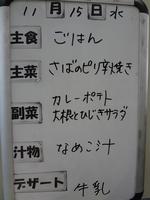 11月15日水
主食 ごはん
主菜 さばのピリ辛焼き
副菜 カレーポテト
大根とひじきサラダ
汁物 なめこ汁
デザート 牛乳